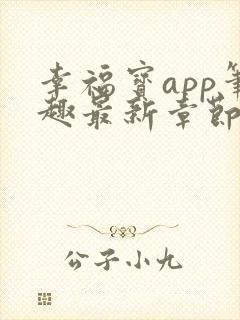 幸福宝app笔
趣最新章节
公子小九